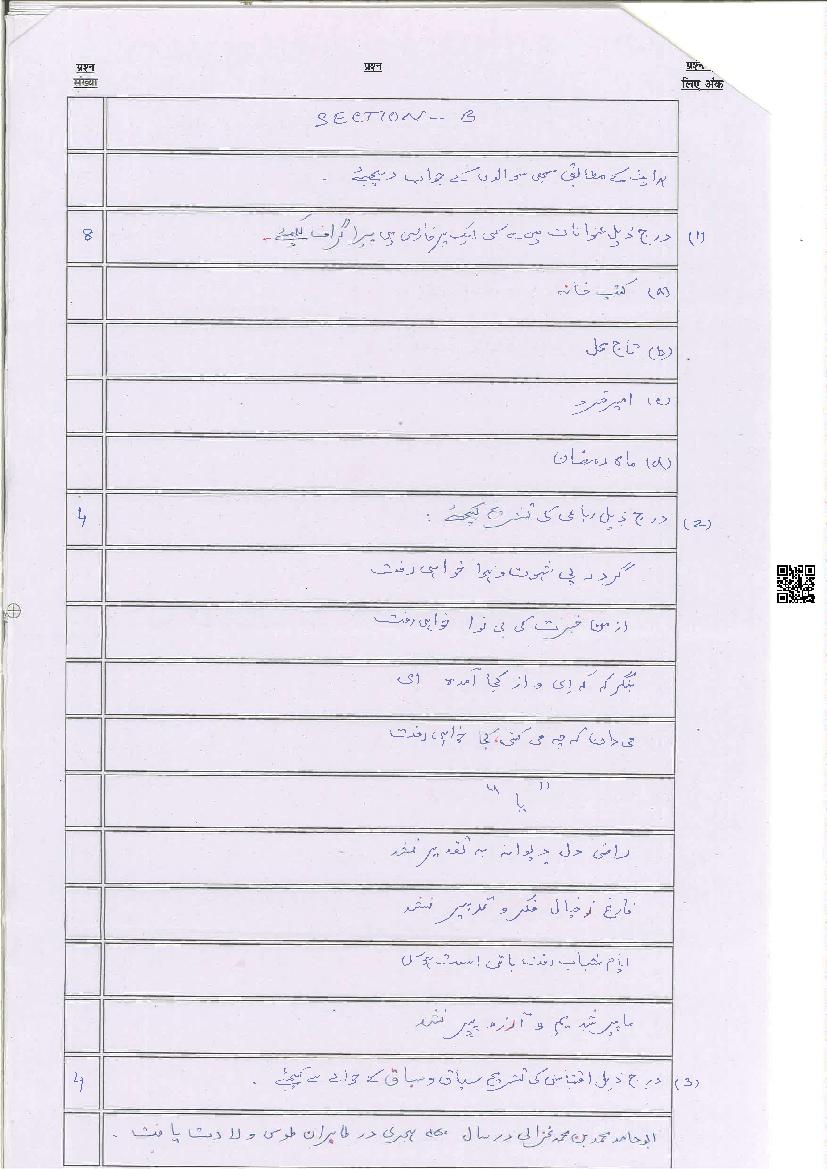 प्रश्न संख्या
प्रश्न
प्रश्न लिए अंक
SECTION -- B
ہدایت کے مطابق سبھی سوالوں کے جواب دیجیئے .
(1) درج ذیل عنوانات میں سے کسی ایک پر فارسی میں پیراگراف لکھیئے . 8
(a) کتب خانہ
(b) تاج محل
(c) امیر خسرو
(d) ماہ رمضان
(2) درج ذیل رباعی کی تشریح کیجئے . 4
گر در پی شہوت و ہوا خواہی رفت
از من خبرت کی بی نوا خواہی رفت
بنگر کہ کہ ای و از کجا آمدہ ای
می دان کہ چہ می کنی، کجا خواہی رفت
" یا "
راضی دل دیوانہ بہ تقدیر نشد
فارغ ز خیال فکر و تدبیر نشد
ایام شباب رفت باقی است
ما پیر شدیم و آرزو پیر نشد
(3) درج ذیل اقتباس کی تشریح سیاق و سباق کے حوالے سے کیجئے . 4
ابو حامد محمد بن محمد غزالی در سال ہجری در طابران طوس ولادت یافت .